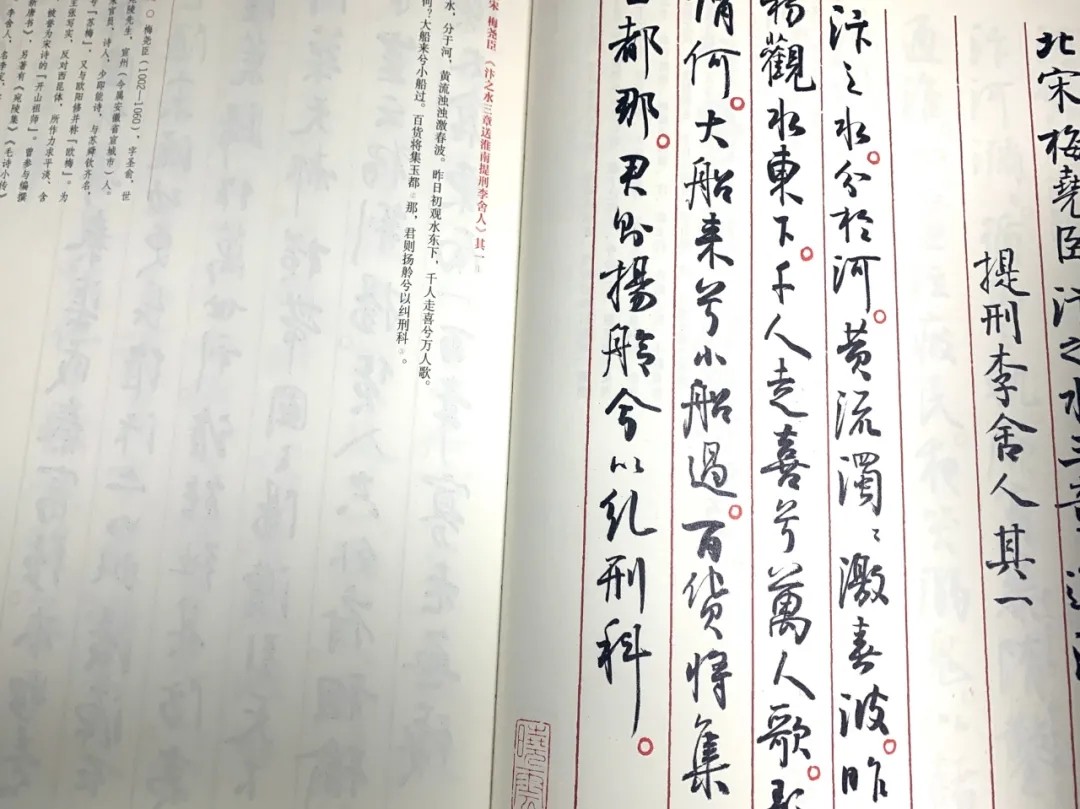 北宋梅堯臣汴之水三章送
提刑李舍人其一
汴之水。分於河。黄流濁〻激春波。昨
初觀水東下。千人走喜兮萬人歌。歌
情何。大船来兮小船過。百貨將集
玉都那。君則揚舲兮以糺刑科。
宋 梅尧臣 《汴之水三章送淮南提刑李舍人》其一
水，分于河，黄流浊浊激春波。昨日初观水东下，千人走喜兮万人歌。
何？大船来兮小船过。百货将集玉都 那，君则扬舲兮以纠刑科 。
梅尧臣（1002—1060），字圣俞，世
宛陵先生，宣州（今属安徽省宣城市）人。
宋官员、诗人，少即能诗，与苏舜钦齐名，
号“苏梅”，又与欧阳修并称“欧梅”。为
主张写实，反对西昆体，所作力求平淡、含
被誉为宋诗的“开山祖师”。曾参与编撰
新唐书》，另著有《宛陵集》《毛诗小传》